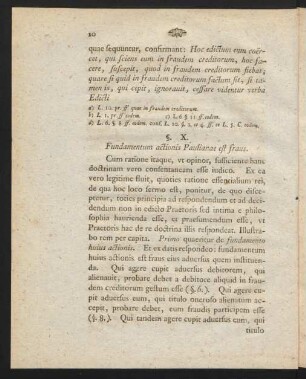 20
quae sequuntur, confirmant: Hoc edictum eum coër-
cet, qui sciens eum in fraudem creditorum, hoc fa-
cere, suscepit, quod in fraudem creditorum fiebat,
quare si quid in fraudem creditorum factum sit, si ta-
men is, qui cepit, ignoravit, cessare videntur verba
Edicti
a) L. 10. pr. ff. quae in fraudem creditorum.
b) L. 1. pr. ff. eodem.
d) L. 6. §. 8. ff. eodem.
§. X.
Fundamentum actionis Paulianae est fraus.
Cum ratione itaque, ut opinor, sufficiente hanc
doctrinam vero consentaneam esse indicit. Et ea
vero legitime fluit, quoties ratione essentiali rei,
de qua hoc loco sermo est, ponitur, de quo disce-
ptatur, toties principia ad respondendum et ad deci-
dendum non in edicto Praetoris sed intima e philo-
sophia haurienda esse, et praesumendum esse, ut
Praetoris hac de re doctrina illis respondeat. Illustra-
bo rem per capita. Primo quaeritur de fundamento
huius actionis. Et ex datis respondeo: fundamentum
huius actionis est fraus eius adversus quem instituen-
da. Qui agere cupit adversus debitorem, qui
alienauit, probare debet a debitore aliquid in frau-
dem creditorum gestum esse (§. 6.). Qui agere cu-
pit adversus eum, qui titulo oneroso alienatum ac-
cepit, probare debet, eum fraudis participem esse
(§. 8.). Qui tandem agere cupit adversus eum, qui
titulo